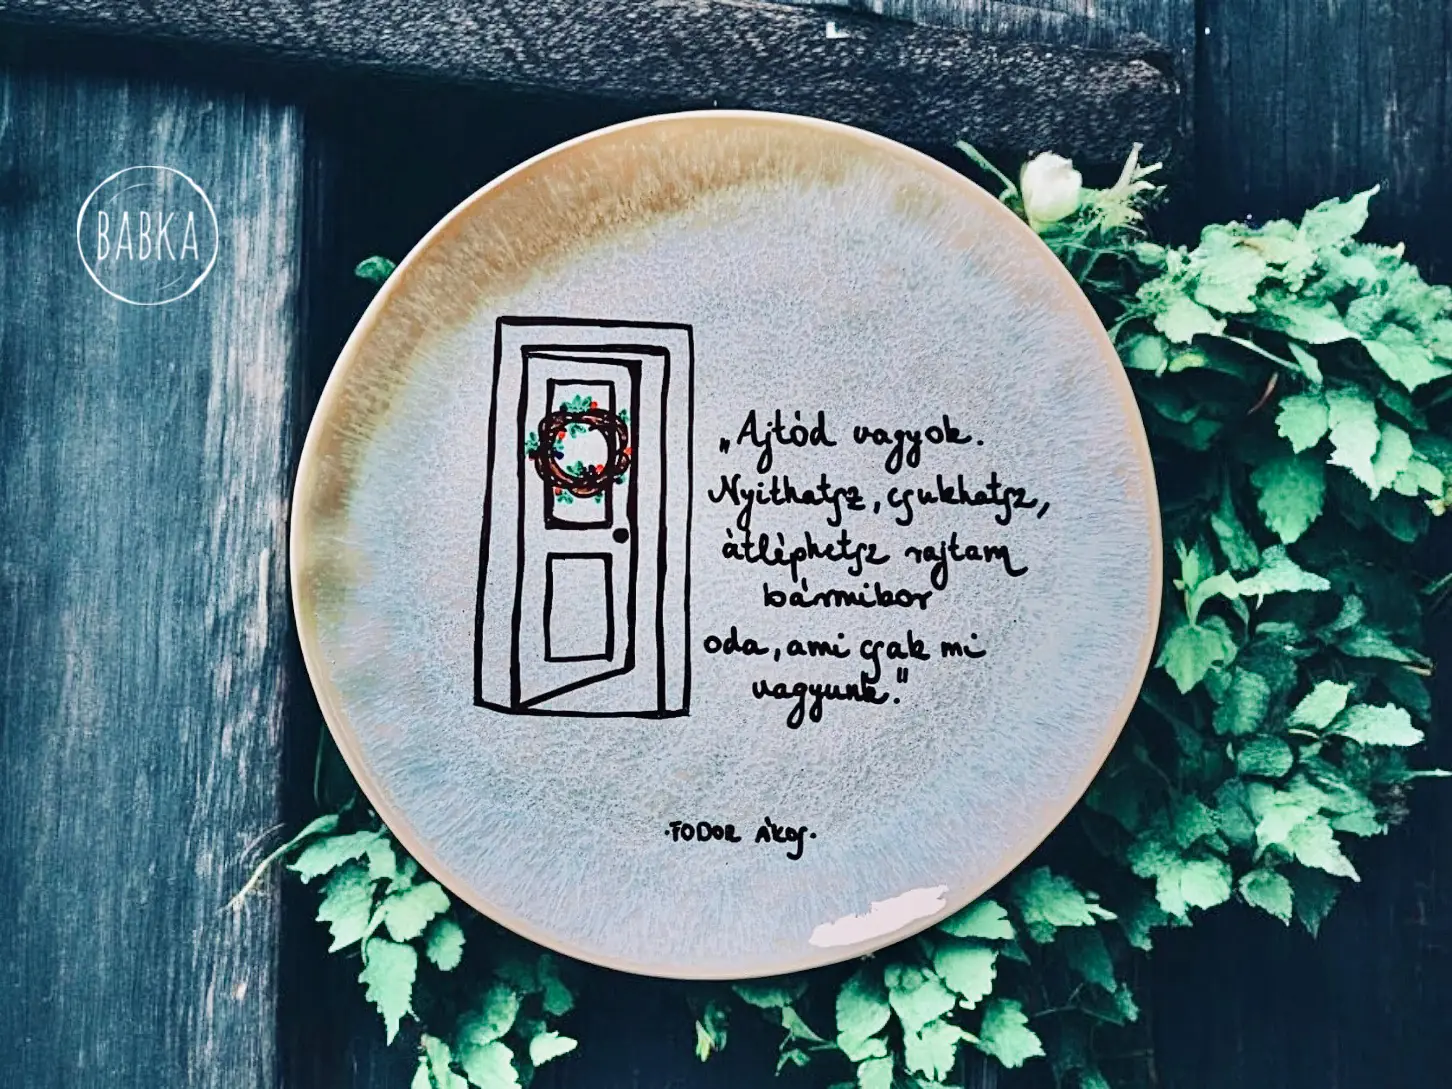 BABKA
„Ajtód vagyok.
Nyithatsz, csukhatsz,
átléphetsz rajtam
bármikor
oda, ami csak mi
vagyunk."
·FODOR ÁKOS·